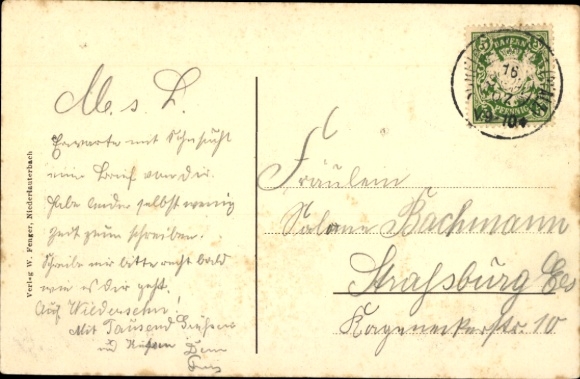 M. s. L.
Erwarte mit Sehnsucht
einen Brief von dir.
Habe leider selbst wenig
Zeit zum schreiben.
Schreibe mir bitte recht bald
wie es dir geht.
Auf Wiedersehn!
Mit Tausend Grüssen
und Küssen Dein
Verlag W. Fenger, Niederlauterbach
BAYERN
5 5
PFENNIG
16
9-10
Fräulein
Salome Bachmann
Straßburg Els
Kageneckerstr. 10